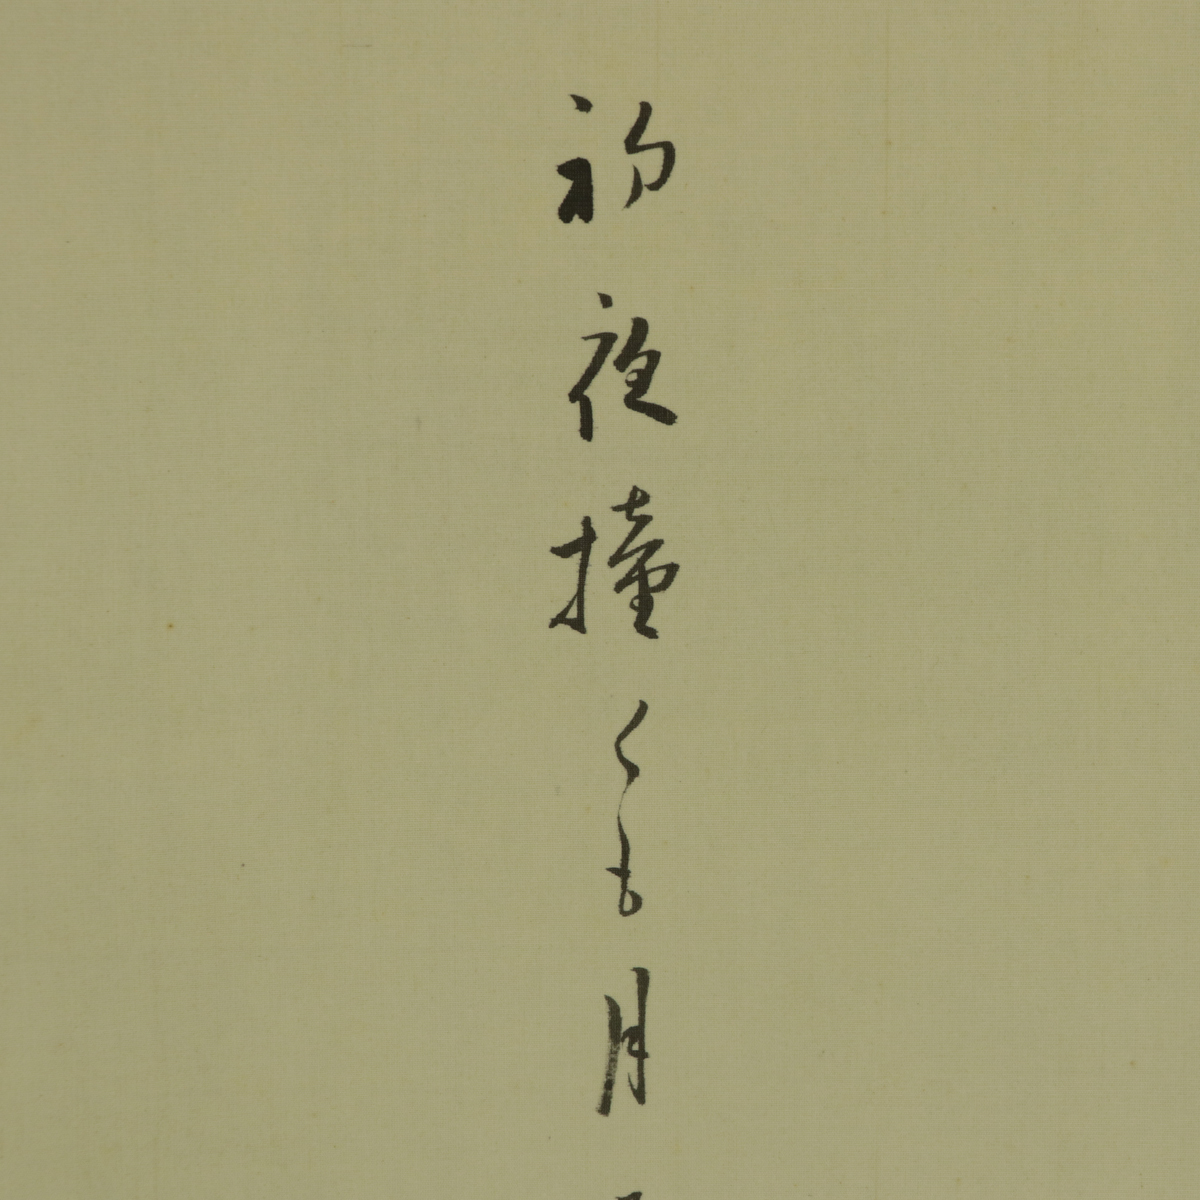 初夜撞くも月